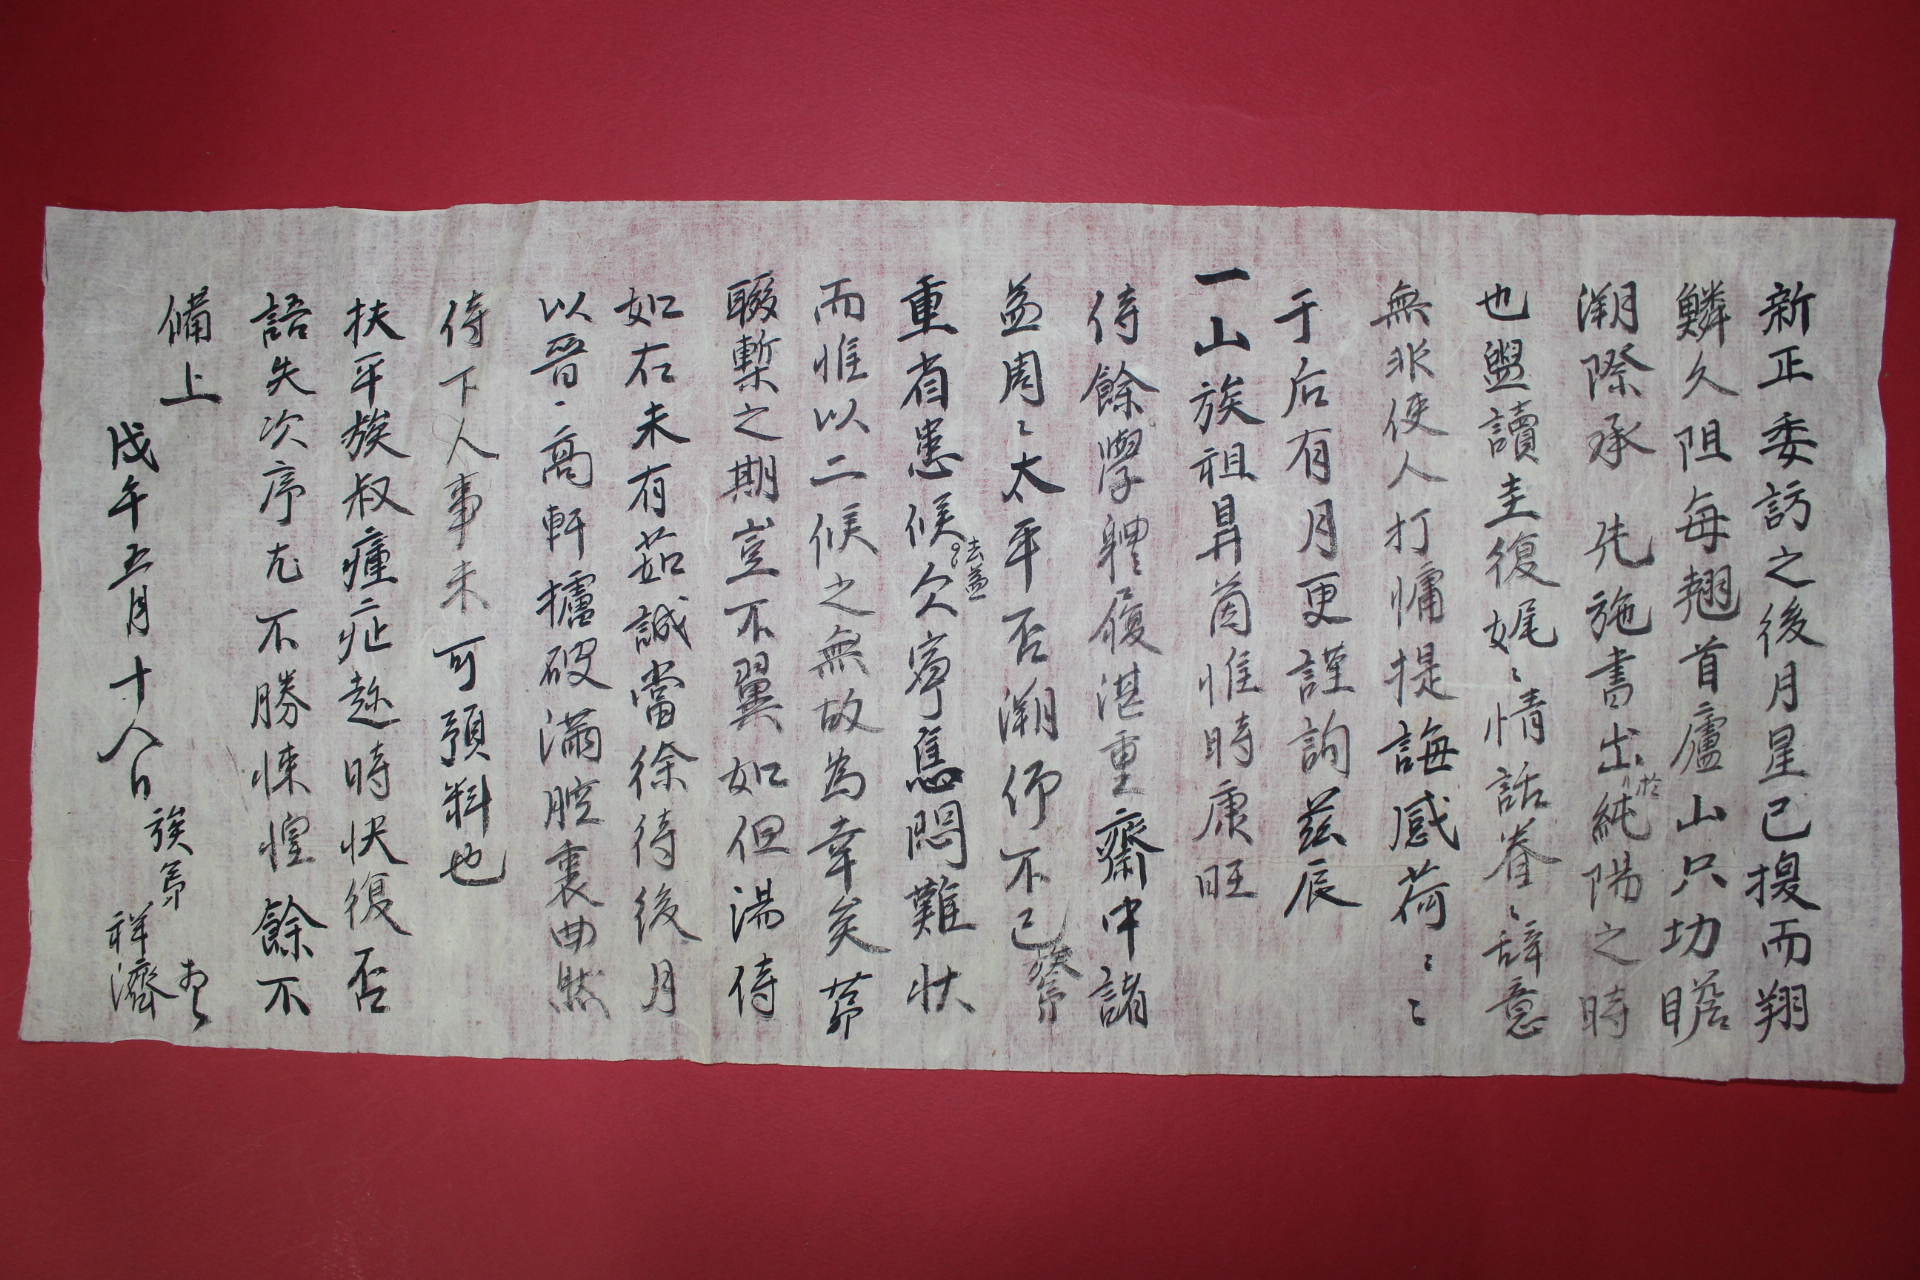 新正委訪之後月星已摸而翔
鱗久阻每翹首廬山只切瞻
溯際承 先施書出於純陽之時
也盥讀圭復娓〻情話眷〻辭意
無非使人打慵提誨感荷〻〻
于后有月更謹詢茲辰
一山族祖昇茵惟時康旺
侍餘學體履湛重齋中諸
益周〻太平否溯仰不已族弟
重省患候欠寧焦悶難狀
而惟以二候之無故為幸矣 茀
聯塹之期豈不翼如但湯侍
如右未有茹誠當徐待後月
以晉〻高軒攄破滿腔裏曲然
侍下人事未可預料也
扶平族叔瘇疘趂時快復否
語失次序尢不勝悚惶 餘不
備上
戊午五月十八日
族弟
祥濟